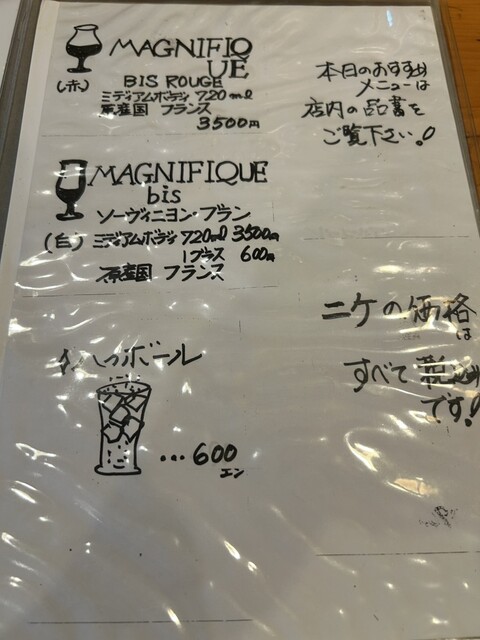 MAGNIFIQ
UE
(赤) BIS ROUGE
ミディアムボディ 720ml
原産国 フランス
3500円
MAGNIFIQUE
bis
ソーヴィニヨン・ブラン
(白) ミディアムボディ 720ml 3500円
1グラス 600円
原産国 フランス
ボール
...600
エン
本日のおすすめ
メニューは
店内の品書を
ご覧下さい!
ニケの価格
は
すべて税込
です!